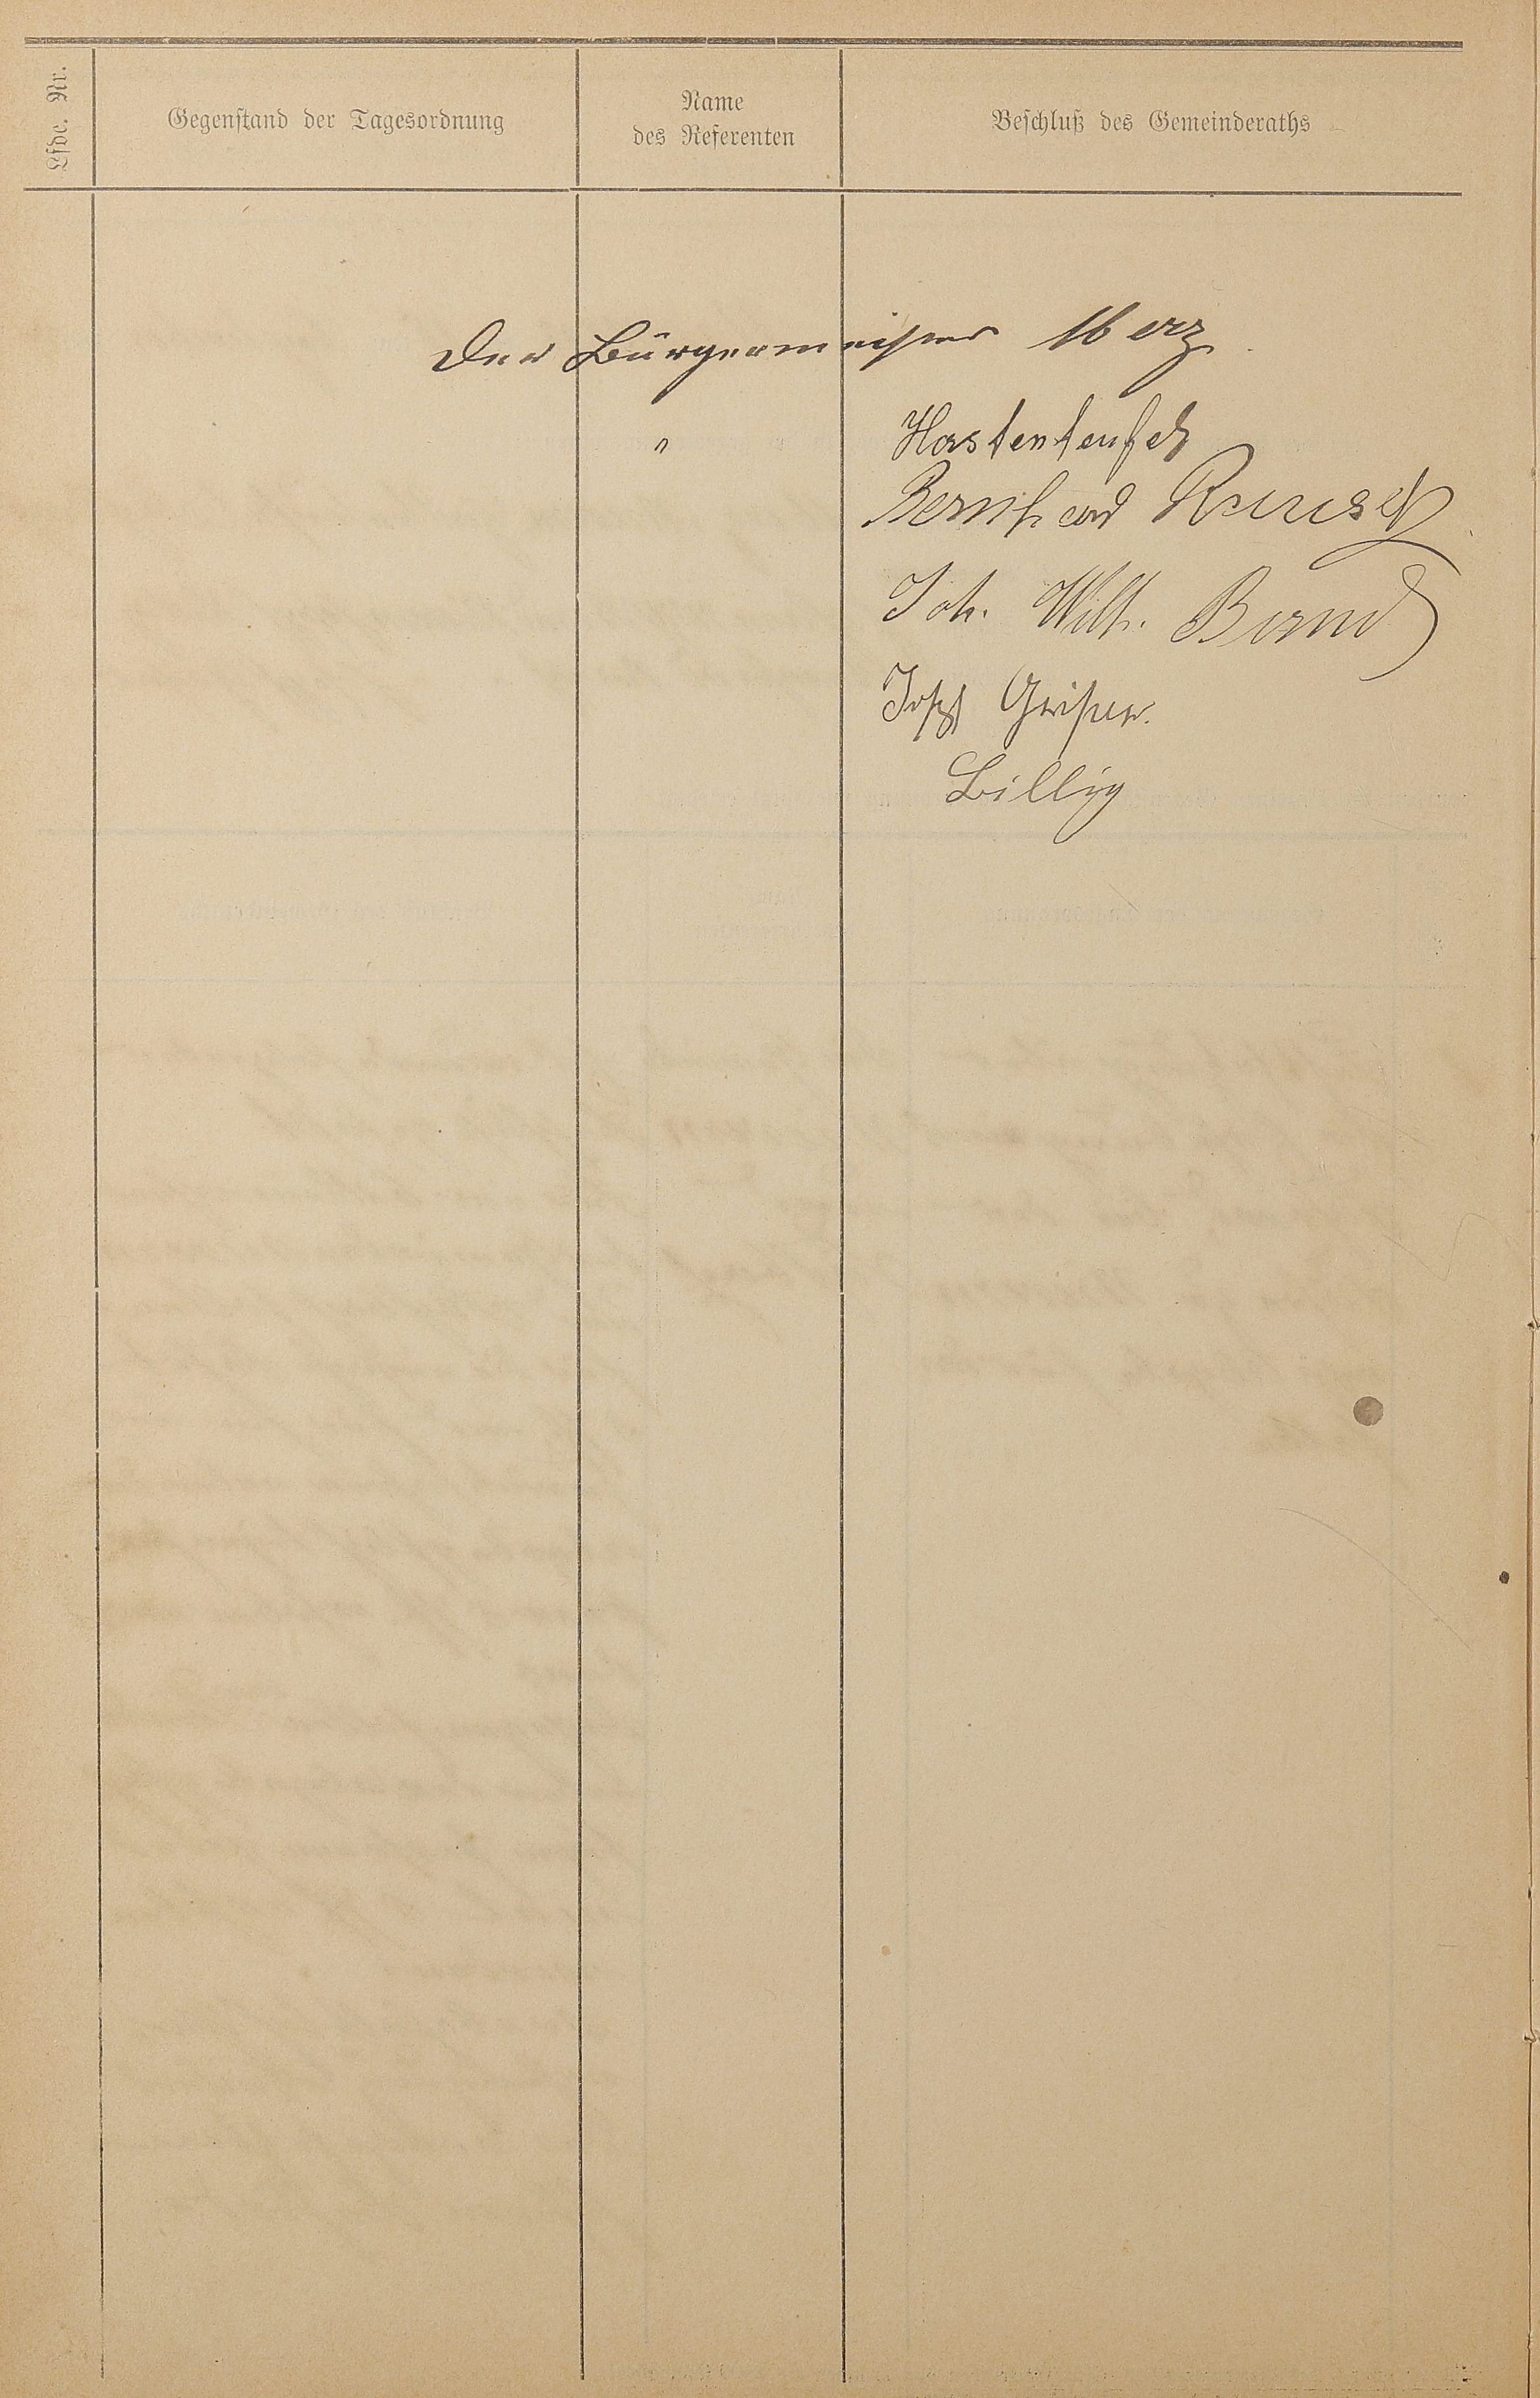 Lfde. Nr.
Gegenstand der Tagesordnung
Name
des Referenten
Beschluß des Gemeinderaths
Der Bürgermeister Merz
" Hastenteufel
Bernhard
Joh. Wilh. Bernd
Josef
Billig